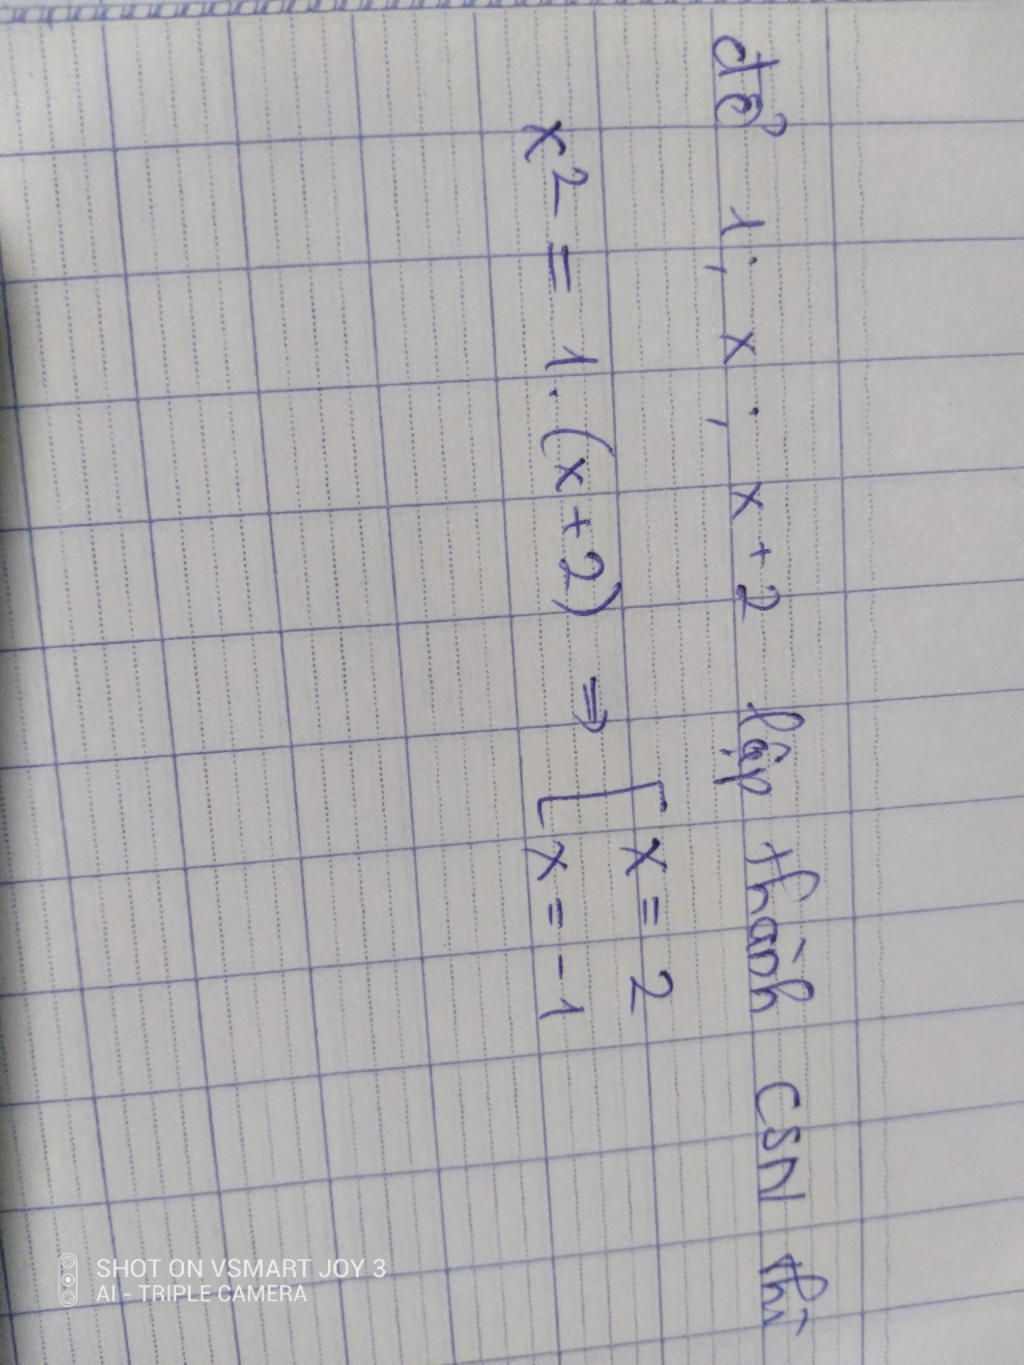 để 1; x; x+2 lập thành CSN thì
x² = 1.(x+2) ⇒ [ x = 2
x = -1
SHOT ON VSMART JOY 3
AI - TRIPLE CAMERA